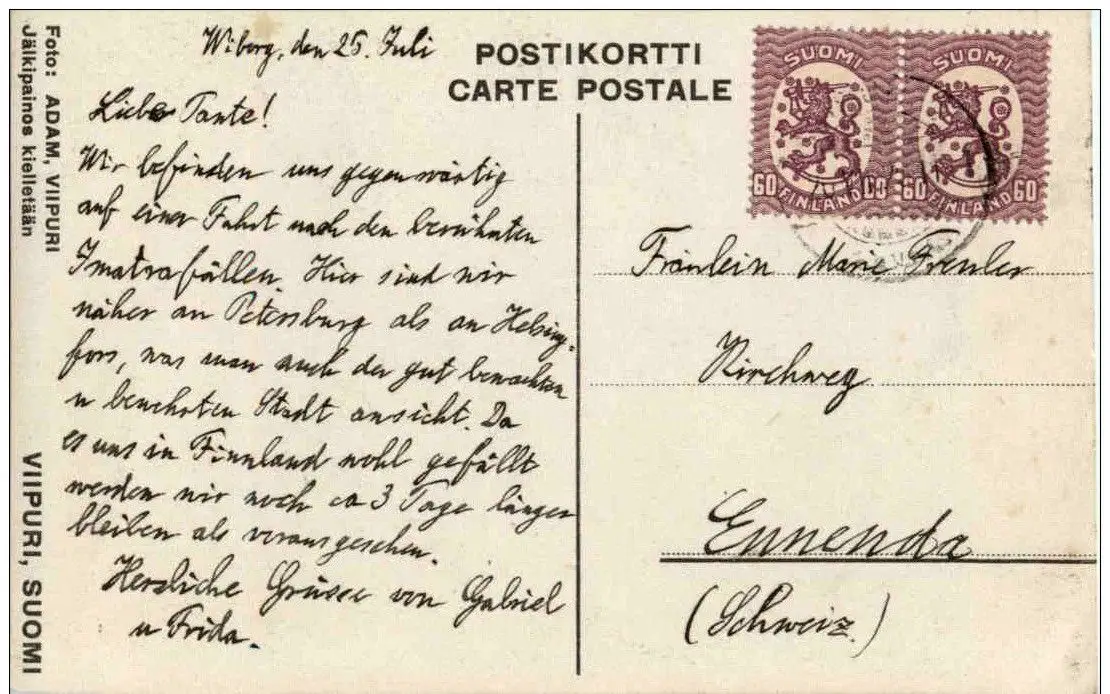 Foto: ADAM, VIIPURI
Jälkipainos kielletään
VIIPURI, SUOMI
POSTIKORTTI
CARTE POSTALE
SUOMI
60 60
FINLAND
SUOMI
60 60
FINLAND
Wiborg, den 25. Juli
Liebe Tante!
Wir befinden uns gegenwärtig
auf einer Fahrt nach den berühmten
Imatrafällen. Hier sind wir
näher an Petersburg als an Helsing-
fors, was man auch der gut bewachten
u bewehrten Stadt ansieht. Da
es uns in Finnland wohl gefällt
werden wir noch ca 3 Tage länger
bleiben als vorausgesehen.
Herzliche Grüsse von Gabriel
u Frida.
Fräulein Marie
Kirchweg
Ennenda
(Schweiz)